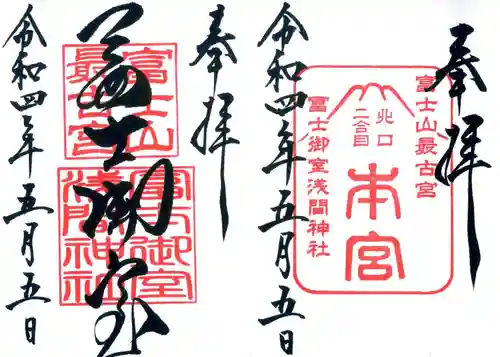 奉拝
富士山最古宮
北口
二合目
本宮
冨士御室浅間神社
令和四年五月五日
奉拝
富士山
最古宮
冨士御室
富士御室
浅間神社
令和四年五月五日